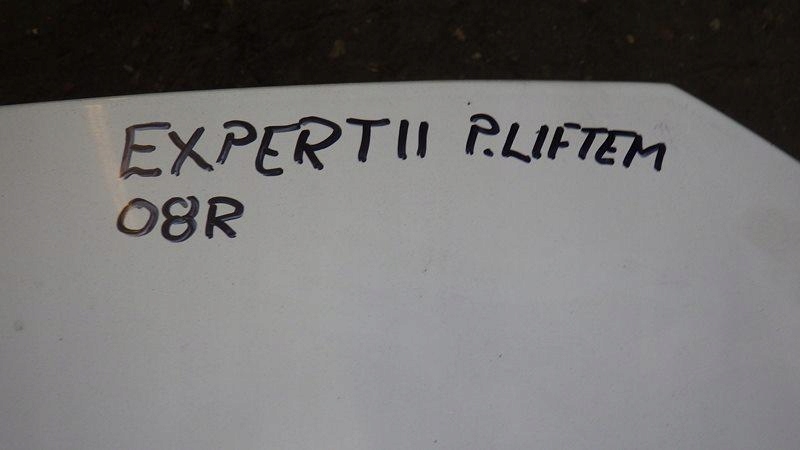 EXPERT II P.LIFTEM
08R